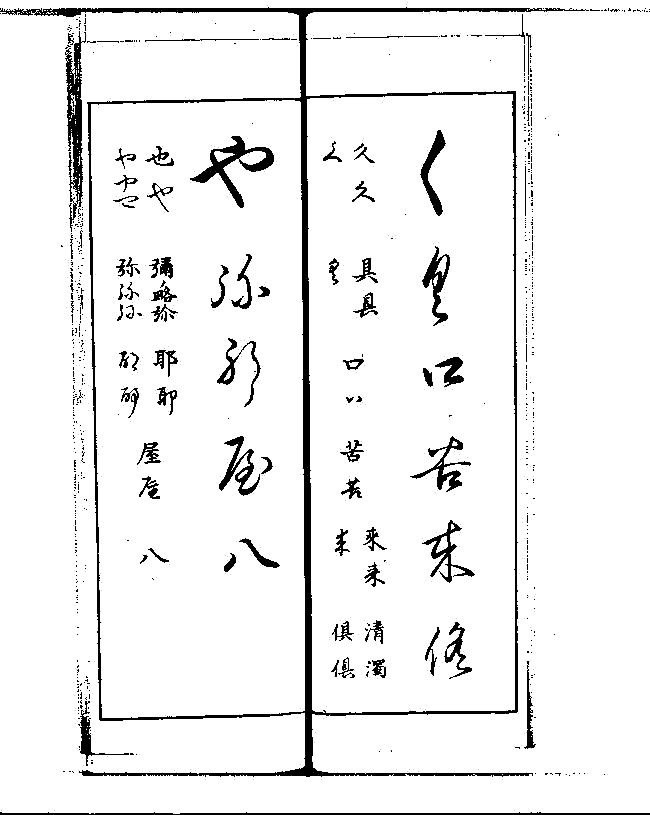 く 具 口 苦 来 倶
久 久 く
具 具 具
口 口
苦 苦
來 来 来
清濁
倶 倶
や 弥 耶 屋 八
也 や や や や
彌 弥 弥 弥 弥
耶 耶 耶 耶
屋 屋
八